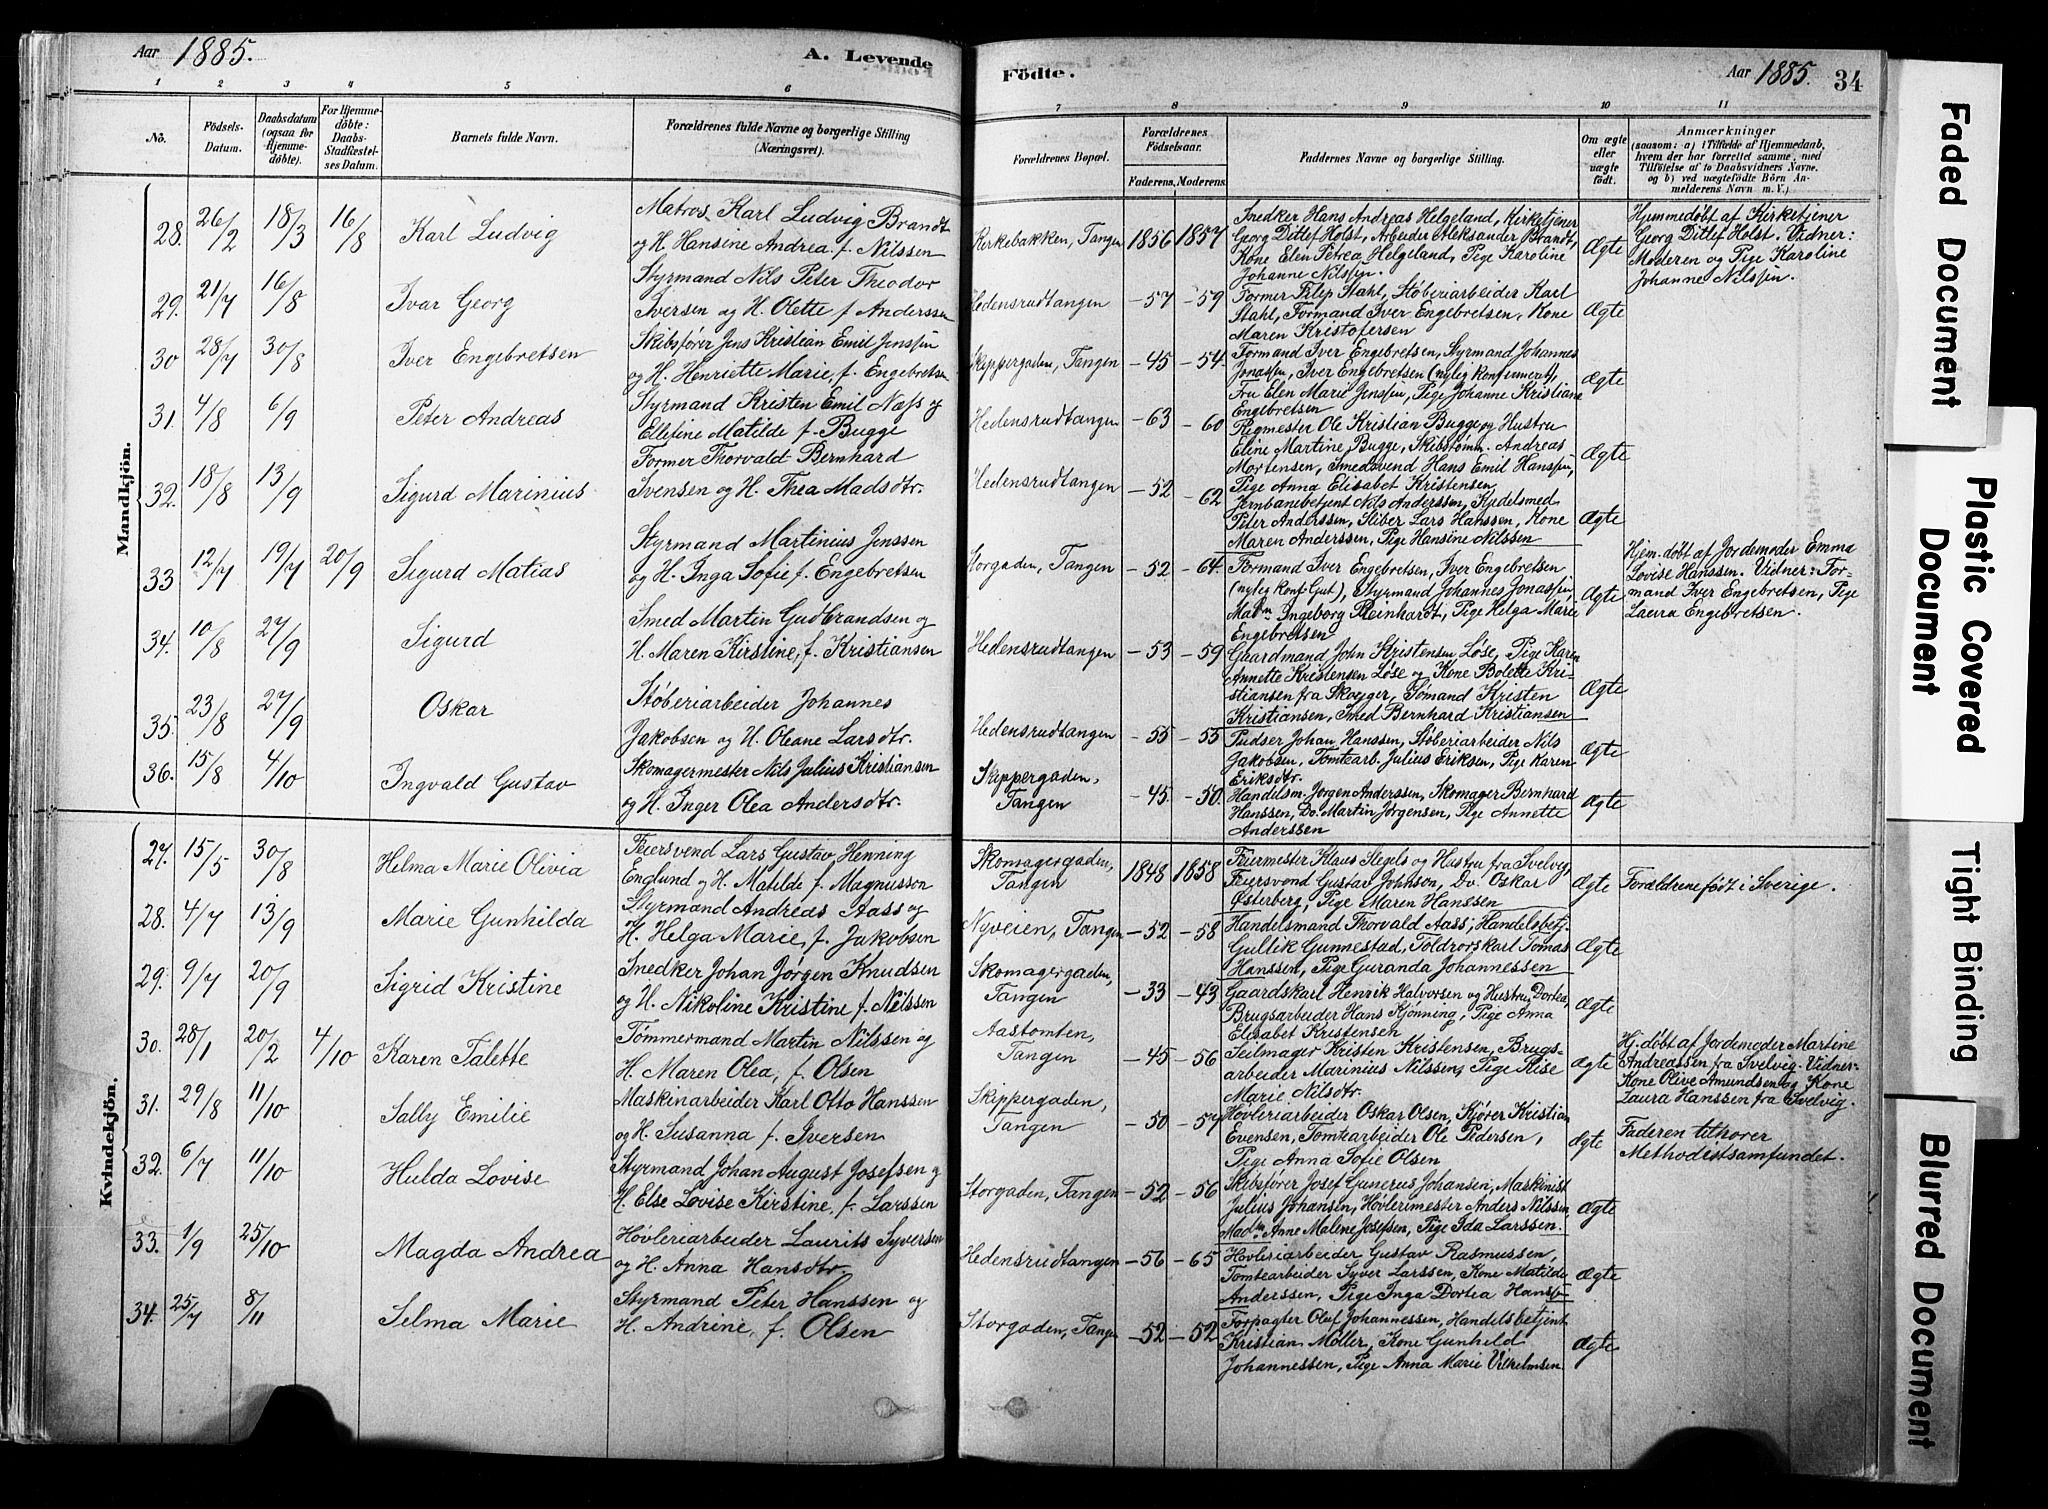 Aar 1885.
A. Levende
1 2 3 4 5 6
No.
Födsels-
Datum.
Daabsdatum
(ogsaa for
Hjemme-
døbte).
For Hjemme-
døbte:
Daabs-
Stadfæstel-
ses Datum.
Barnets fulde Navn.
Forældrenes fulde Navne og borgerlige Stilling
(Næringsvei).
Mandkjön.
28. 26/2 18/3 16/8 Karl Ludvig
Matros Karl Ludvig Brandt
og H. Hansine Andrea f. Nilssen
29. 21/7 16/8 Ivar Georg
Styrmand Nils Peter Theodor
Iversen og H. Olette f. Anderssen
30 28/7 30/8 Iver Engebretsen
Skibsfører Jens Kristian Emil Jenssen
og H. Henriette Marie, f. Engebretsen
31. 4/8 6/9 Peter Andreas
Styrmand Kristen Emil Næss og
Ellefine Matilde f. Bugge
32. 18/8 13/9 Sigurd Marinius
Former Thorvald Bernhard
Svensen og H. Thea Madsdtr.
33 12/7 19/7 20/9 Sigurd Matias
Styrmand Martinius Jenssen
og H. Inga Sofie f. Engebretsen
34. 10/8 27/9 Sigurd
Smed Martin Gudbrandsen og
H. Maren Kirstine, f. Kristiansen
35. 23/8 27/9 Oskar
Støberiarbeider Johannes
Jakobsen og H. Oleane Larsdtr.
36. 15/8 4/10 Ingvald Gustav
Skomagermester Nils Julius Kristiansen
og H. Inger Olea Andersdtr.
Kvindekjön.
27. 15/5 30/8 Helma Marie Olivia
Feiersvend Lars Gustav Henning
Englund og H. Matilde f. Magnusson
28. 4/7 13/9 Marie Gunhilda
Styrmand Andreas Aass og
H. Helga Marie, f. Jakobsen
29. 9/7 20/9 Sigrid Kristine
Snedker Johan Jørgen Knudsen
og H. Nikoline Kristine f. Nilssen
30. 28/1 20/2 4/10 Karen Talette
Tømmermand Martin Nilssen og
H. Maren Olea, f. Olsen
31. 29/8 11/10 Sally Emilie
Maskinarbeider Karl Otto Hanssen
og H. Susanna f. Iversen
32. 6/7 11/10 Hulda Lovise
Styrmand Johan August Josefsen og
H. Else Lovise Kirstine, f. Larssen
33. 1/9 25/10 Magda Andrea
Høvleriarbeider Laurits Syversen
og H. Anna Hansdtr.
34. 25/7 8/11 Selma Marie
Styrmand Peter Hanssen og
H. Andrine, f. Olsen
Födte.
Aar 1885. 34
7 8 9 10 11
Forældrenes Bopæl.
Forældrenes
Födselsaar.
Faderens. Moderens.
Faddernes Navne og borgerlige Stilling.
Om ægte
eller
uægte
født.
Anmærkninger
(saasom: a) i Tilfælde af Hjemmedaab,
hvem der har forrettet samme, med
Tilföielse af to Daabsvidners Navne.
og b) ved uægtefödte Börn An-
melderens Navn m. V.)
Kirkebakken, Tangen 1856 1857
Snedker Hans Andreas Helgeland, Kirketjener
Georg Ditlef Holst, Arbeider Aleksander Brandt,
Kone Elen Petrea Helgeland, Pige Karoline
Johanne Nilssen.
Ægte
Hjemmedøbt af Kirketjener
Georg Ditlef Holst. Vidner:
Moderen og Pige Karoline
Johanne Nilssen.
Hedensrudtangen - 57 - 59
Former Filip Stahl, Støberiarbeider Karl
Stahl, Formand Iver Engebretsen, Kone
Maren Kristofersen
Ægte
Skippergaden, Tangen - 45 - 54.
Formand Iver Engebretsen, Styrmand Johannes
Jonassen, Iver Engebretsen (nyleg konfirmert),
Fru Elen Marie Jenssen, Pige Johanne Kristiane
Engebretsen
Ægte
Hedensrudtangen - 63 - 60
Rigmester Ole Kristian Bugge og Hustru
Eline Martine Bugge, Skibstømm. Andreas
Mortensen, Smedsvend Hans Emil Hanssen,
Pige Anna Elisabet Kristensen
Ægte
Hedensrudtangen - 52 - 62
Jernbanebetjent Nils Anderssen, Kjedelsmed
Peter Anderssen, Sliber Lars Hanssen, Kone
Maren Anderssen, Pige Hansine Nilssen
Ægte
Storgaden, Tangen - 52 - 64.
Formand Iver Engebretsen, Iver Engebretsen
(nyleg konf. Gut), Styrmand Johannes Jonassen,
Madm Ingeborg Reinhardt, Pige Helga Marie
Engebretsen
Ægte
Hjem. døbt af Jordemoder Emma
Lovise Hanssen. Vidner: For-
mand Iver Engebretsen, Pige
Laura Engebretsen.
Hedensrudtangen - 53 - 59
Gaardmand John Kristensen Løse, Pige Karen
Annette Kristensen Løse og Kone Bolette Kri-
stiansen fra Skoger, Sømand Kristen
Kristiansen, Smed Bernhard Kristiansen
Ægte
Hedensrudtangen - 55 - 55
Pudser Johan Hanssen, Støberiarbeider Nils
Jakobsen, Tomtearb. Julius Eriksen, Pige Karen
Eriksdtr.
Ægte
Skippergaden,
Tangen - 45. - 50.
Handelsm. Jørgen Anderssen, Skomager Bernhard
Hanssen, Do. Martin Jørgensen, Pige Annette
Anderssen
Ægte
Skomagergaden,
Tangen 1848 1858
Feiermester Klaus Slegels og Hustru fra Svelvig,
Feiersvend Gustav Johnson, Do. Oskar
Østerberg, Pige Maren Hanssen
Ægte
Forældrene født i Sverige.
Nyveien, Tangen - 52 - 58
Handelsmand Thorvald Aass, Handelsbetj.
Gullik Gunnestad, Toldrorskarl Tomas
Hanssen, Pige Guranda Johannessen
Ægte
Skomagergaden,
Tangen - 33 - 43
Gaardskarl Henrik Halvorsen og Hustru Dortea,
Brugsarbeider Hans Kjønning, Pige Anna
Elisabet Kristensen
Ægte
Aastomten,
Tangen - 45 - 56
Seilmager Kristen Kristensen, Brugs-
arbeider Marinius Nilssen, Pige Rise
Marie Nilsdtr.
Ægte
Hj. døbt af Jordemoder Martine
Andreassen fra Svelvig. Vidner:
Kone Olive Amundsen og Kone
Laura Hanssen fra Svelvig.
Skippergaden,
Tangen - 50 - 57
Høvleriarbeider Oskar Olsen, Kjører Kristian
Evensen, Tomtearbeider Ole Pedersen,
Pige Anna Sofie Olsen
Ægte
Faderen tilhører
Methodistsamfundet.
Storgaden, Tangen - 52 - 56
Skibsfører Josef Gunerus Johansen, Maskinist
Julius Johansen, Høvlerimester Anders Nilssen
Madm. Anne Malene Josefsen, Pige Ida Larssen.
Ægte
Hedensrudtangen - 56 - 65
Høvleriarbeider Gustav Rasmussen,
Tomtearbeider Syver Larssen, Kone Matilde
Anderssen, Pige Inga Dortea Hanss.
Ægte
Storgaden, Tangen - 52 - 52
Forpagter Oluf Johannessen, Handelsbetjent
Kristian Møller, Kone Gunhild
Johannessen, Pige Anna Marie Vilhelmsen
Ægte
Faded Document
Plastic Covered
Document
Tight Binding
Blurred Document